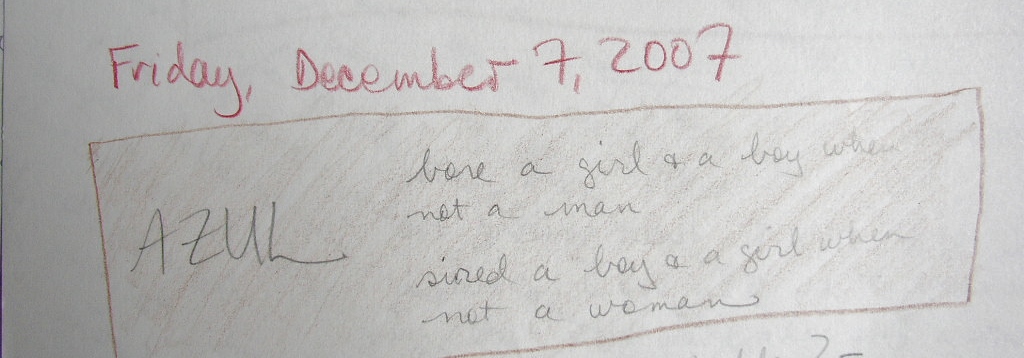 Friday, December 7, 2007
AZUL
bore a girl & a boy when
not a man
sired a boy & a girl when
not a woman